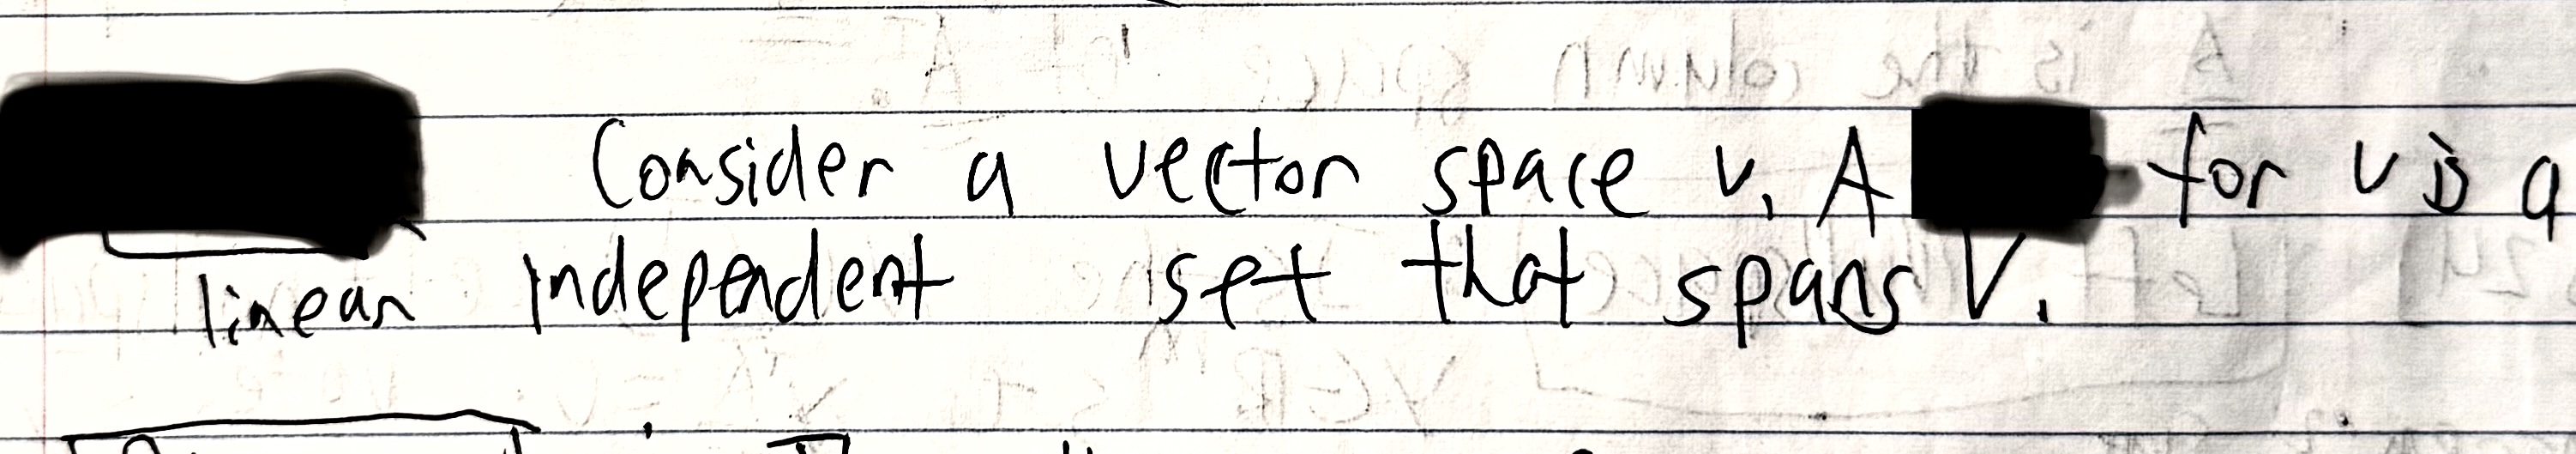 Consider a vector space v. A for v is a
linear independent set that spans V.